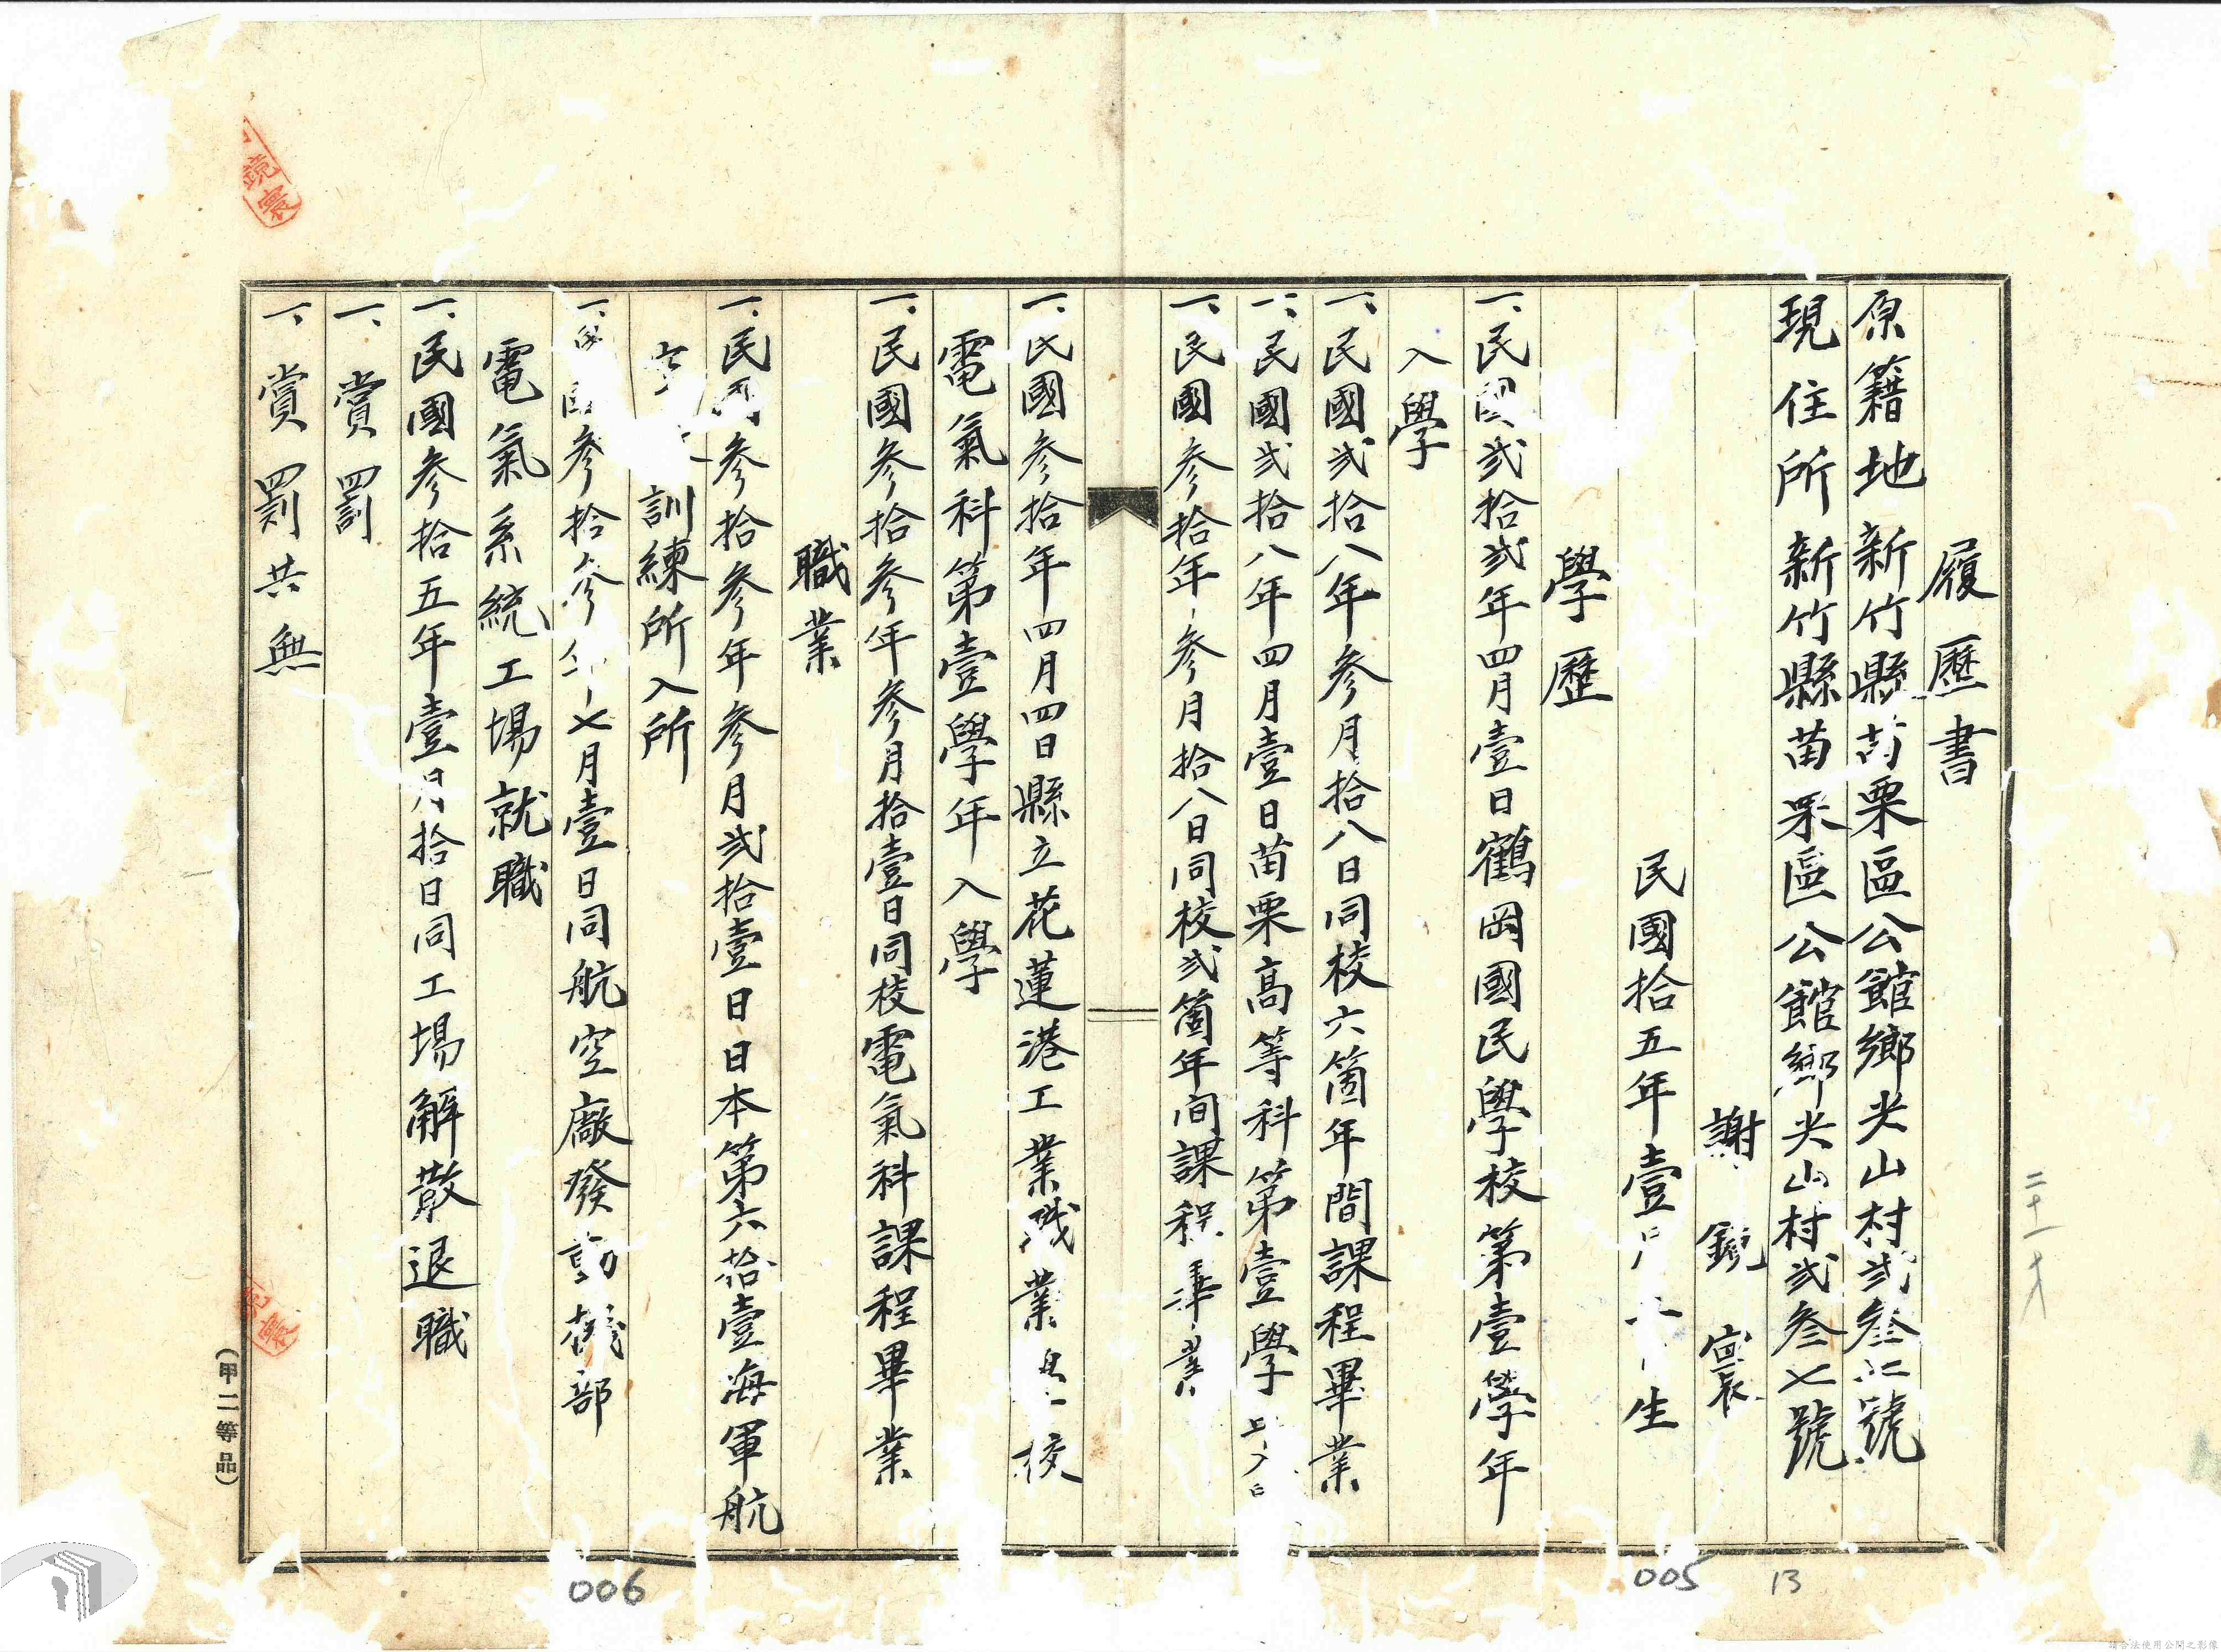 履歷書
原籍地新竹縣苗栗區公館鄉尖山村弍叁七號
現住所新竹縣苗栗區公館鄉尖山村弍叁七號
謝鏡寰
民國拾五年壹月生
學歷
一、民國弍拾弍年四月壹日鶴岡國民學校第壹學年
入學
一、民國弍拾八年參月拾八日同校六箇年間課程畢業
一、民國弍拾八年四月壹日苗栗高等科第壹學
一、民國參拾年參月拾八日同校弍箇年间課程畢業
一、民國參拾年四月四日縣立花蓮港工業職業校
電氣科第壹學年入學
一、民國參拾參年參月拾壹日同校電氣科課程畢業
職業
一、民國參拾參年參月弍拾壹日日本第六拾壹海軍航
空訓練所入所
一、民國參拾參年七月壹日同航空廠發動機部
電氣系統工場就職
一、民國參拾五年壹月拾日同工場解散退職
一、賞罰
一、賞罰共無
鏡寰
(甲二等品)
二十一才
005
13
006